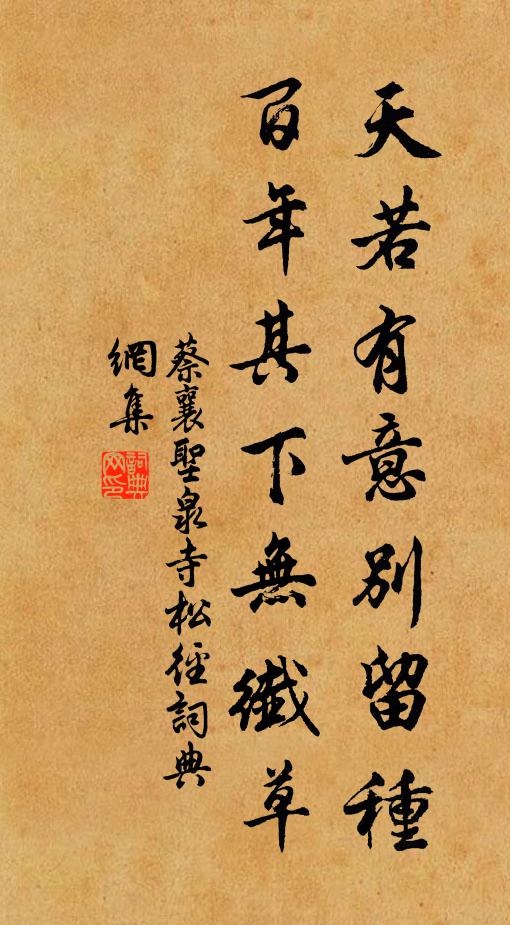 天若有意別留種
百年其下無纖草
蔡襄聖泉寺松徑詞典
網集
詞典
网印